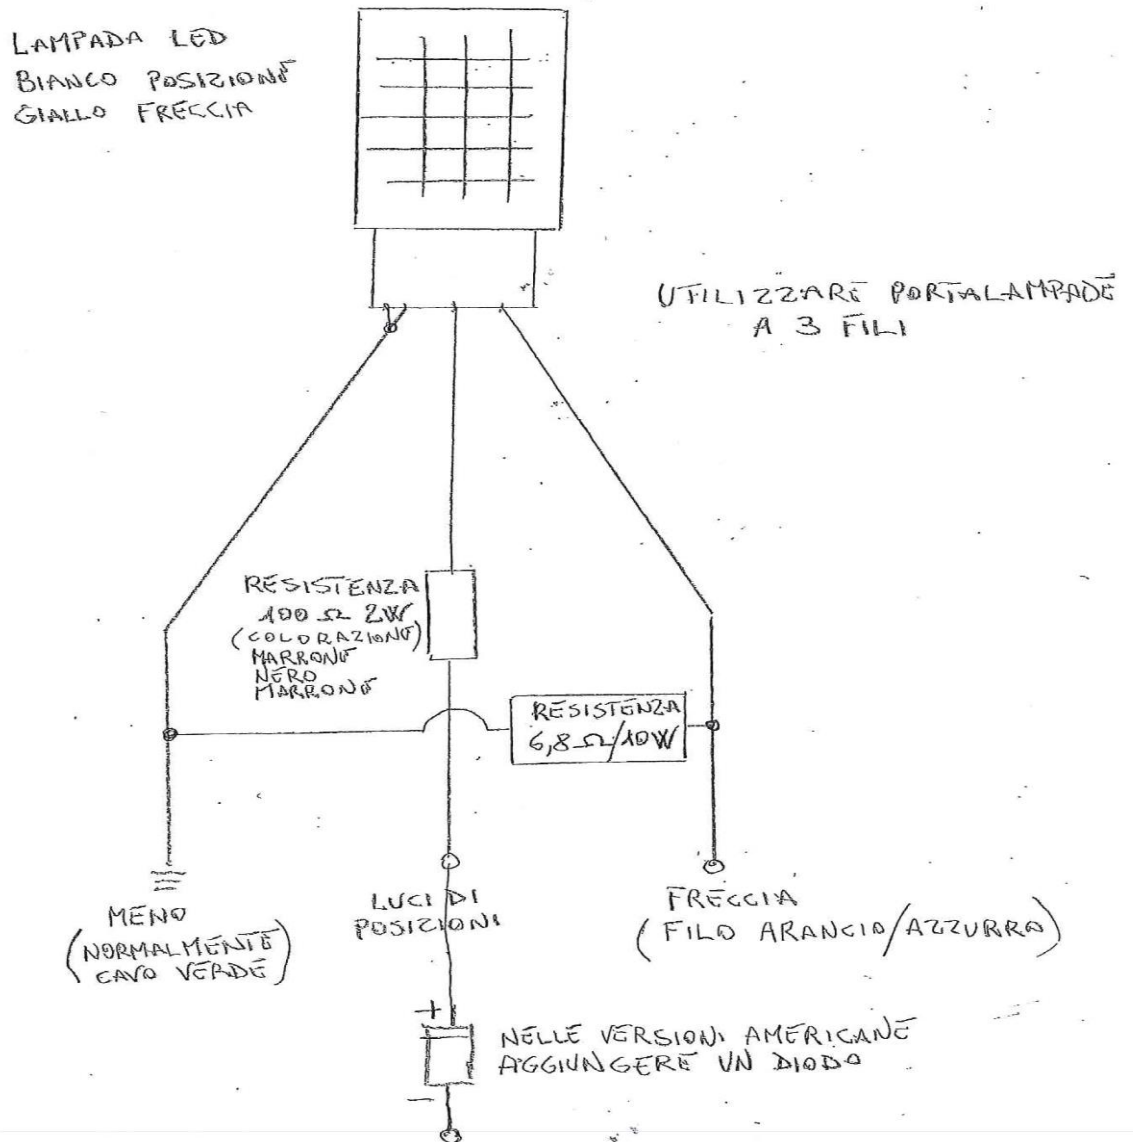 LAMPADA LED
BIANCO POSIZIONE
GIALLO FRECCIA
UTILIZZARE PORTALAMPADE
A 3 FILI
RESISTENZA
100 Ω 2W
(COLORAZIONE)
MARRONE
NERO
MARRONE
RESISTENZA
6,8 Ω/10W
MENO
(NORMALMENTE
CAVO VERDE)
LUCI DI
POSIZIONI
FRECCIA
(FILO ARANCIO/AZZURRO)
+
NELLE VERSIONI AMERICANE
AGGIUNGERE UN DIODO
-